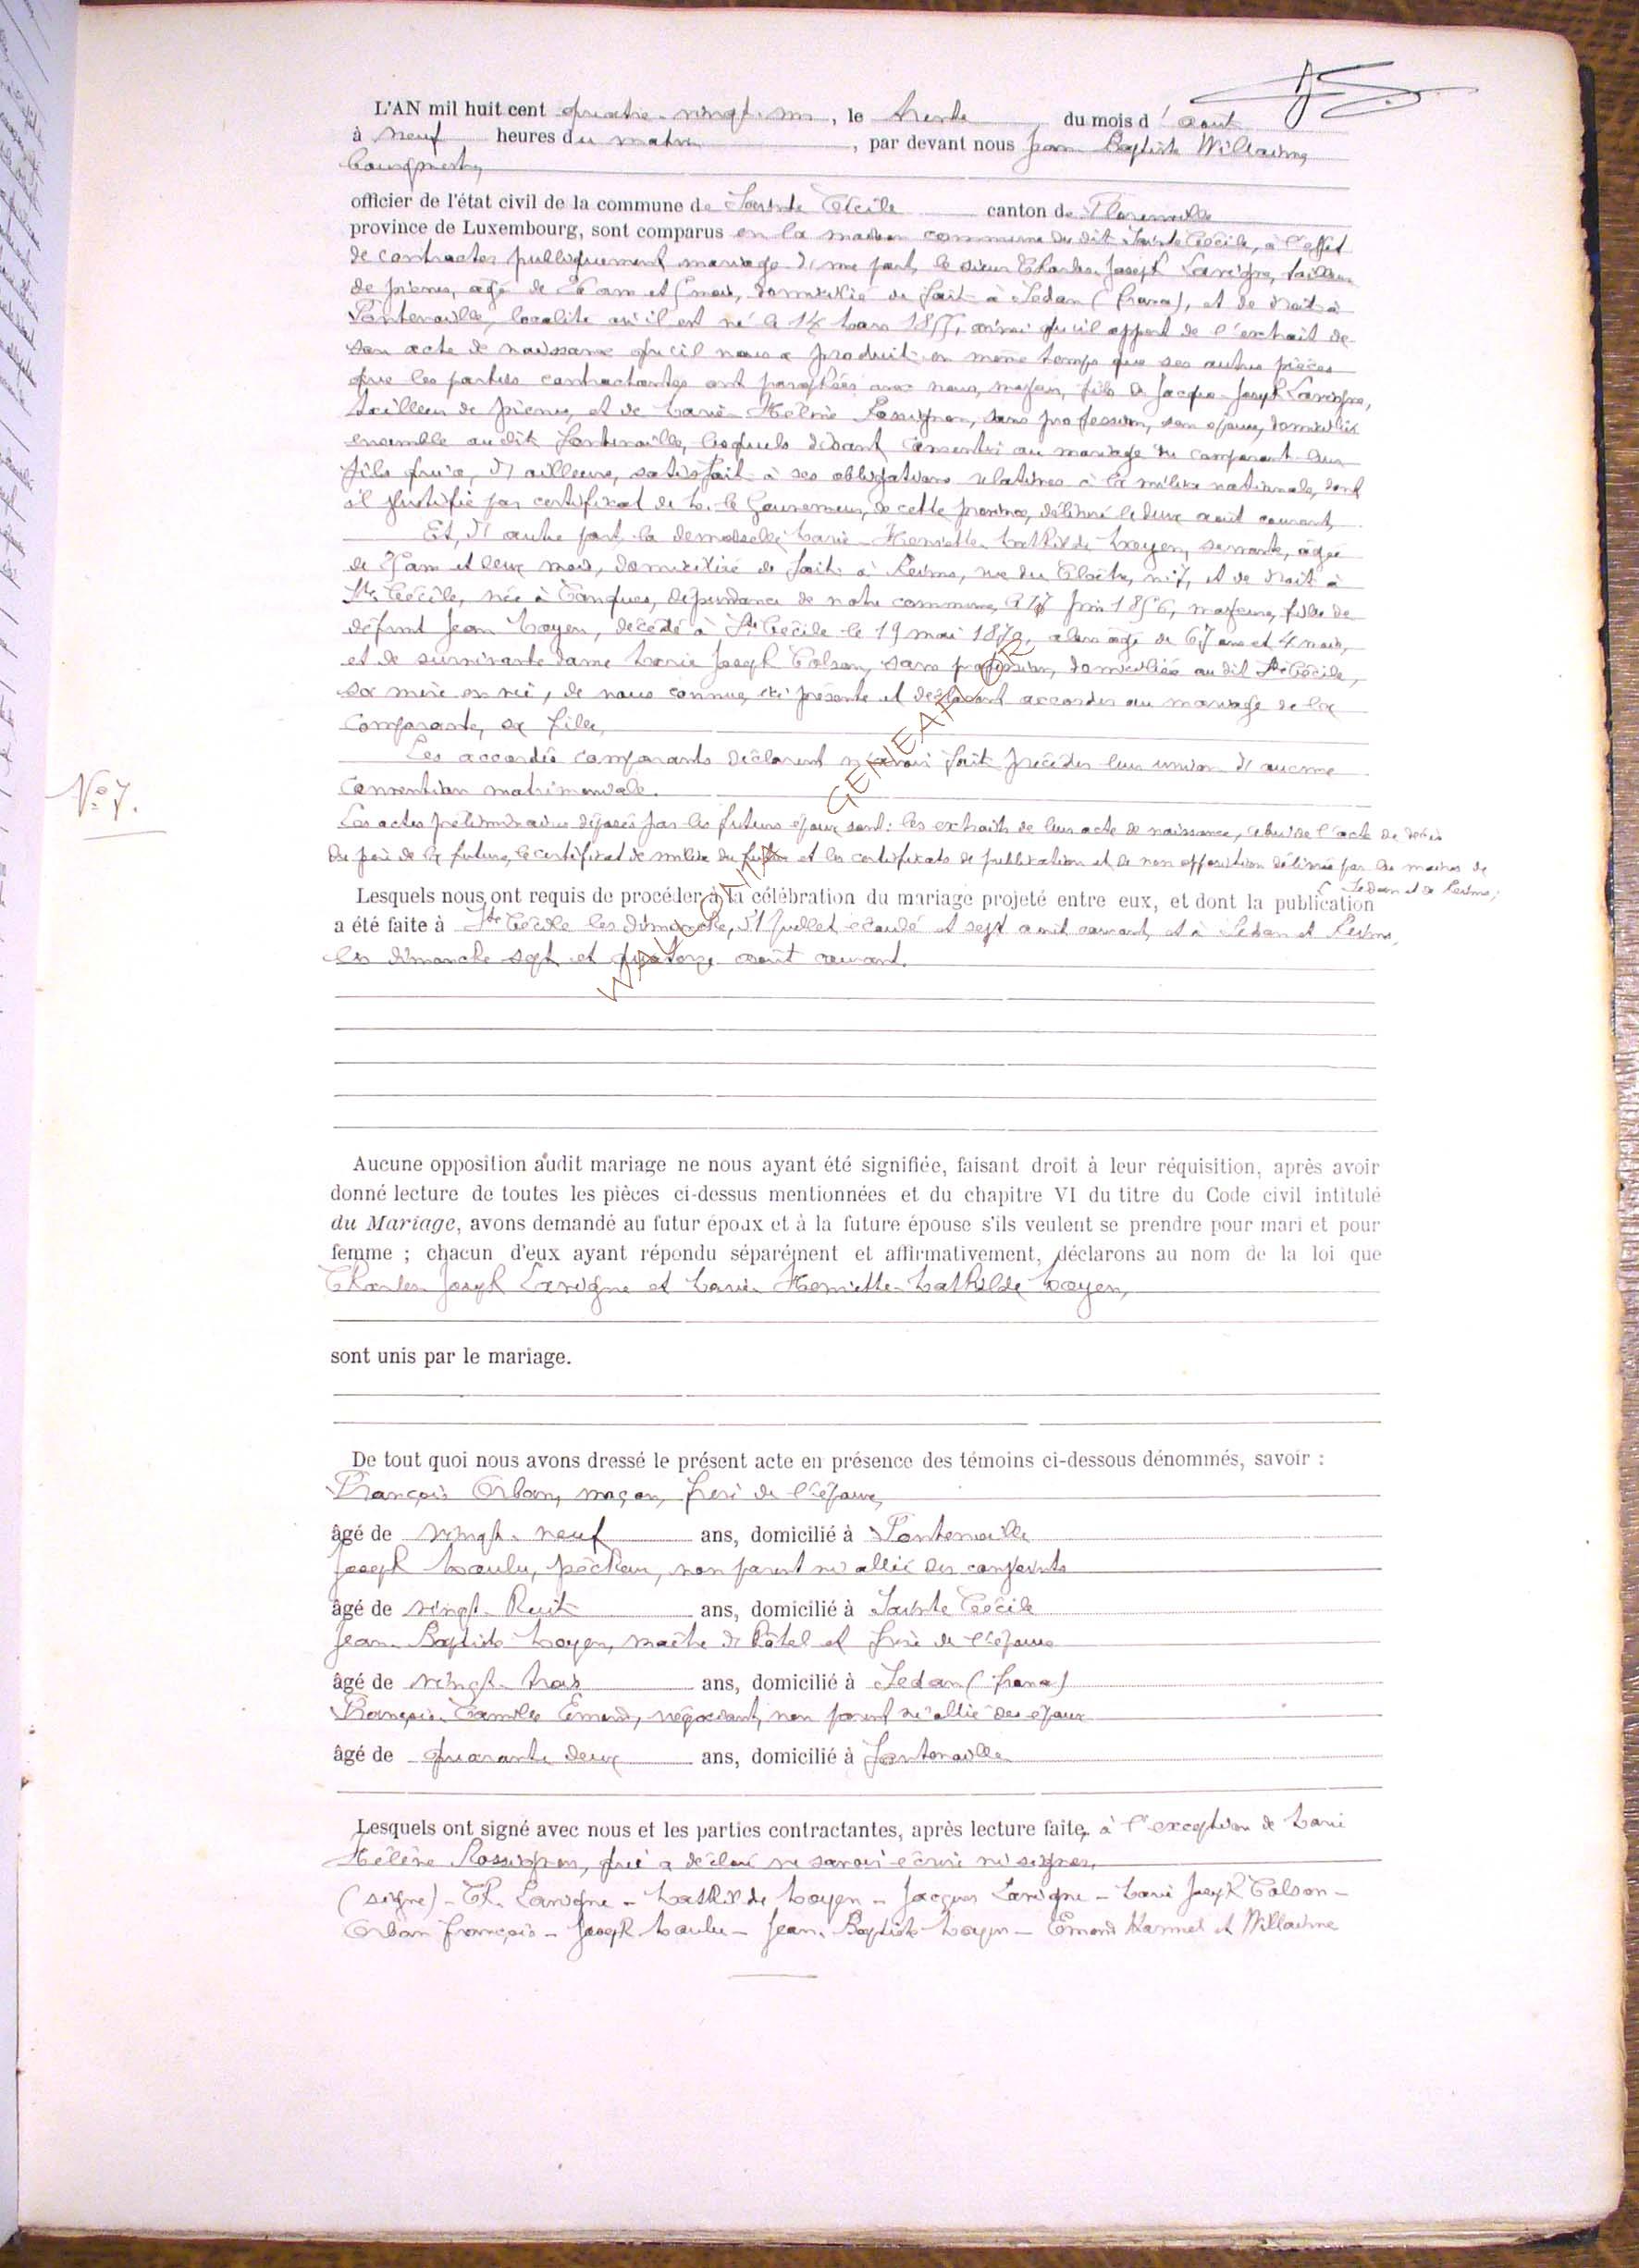 L'AN mil huit cent quatre-vingt-un, le trente du mois d'août
à neuf heures du matin, par devant nous Jean Baptiste Willaime,
bourgmestre,
officier de l'état civil de la commune de Sainte Cécile canton de Florenville
province de Luxembourg, sont comparus en la maison commune du dit Sainte Cécile, à l'effet
de contracter publiquement mariage d'une part, le sieur Charles Joseph Lavigne, tailleur
de pierres, âgé de 26 ans et 5 mois, domicilié de fait à Sedan (france), et de droit à
Fontenoille, localité où il est né le 14 Mars 1855, ainsi qu'il appert de l'extrait de
son acte de naissance qu'il nous a produit en même temps que ses autres pièces
que les parties contractantes ont paraphées avec nous, majeur, fils de Jacques-Joseph Lavigne,
tailleur de pierres, et de Marie-Hélène Rossignon, sans profession, son épouse, domiciliés
ensemble au dit Fontenoille, lesquels disant consentir au mariage du comparant leur
fils qui a, d'ailleurs, satisfait à ses obligations relatives à la milice nationale, dont
il justifie par certificat de M. le Gouverneur de cette province, délivré le deux août courant,
Et, d'autre part, la demoiselle Marie-Henriette-Mathilde Moyen, servante, âgée
de 25 ans et deux mois, domiciliée de fait à Reims, rue du Cloître, n° 7, et de droit à
Ste Cécile, née à Conques, dépendance de notre commune, le 17 juin 1856, majeure, fille de
défunt Jean Moyen, décédé à Ste Cécile le 19 mai 1870, alors âgé de 67 ans et 4 mois,
et de survivante dame Marie Joseph Colson, sans profession, domiciliée au dit Ste Cécile,
sa mère en vie, de nous connue, ici présente et déclarant accorder au mariage de la
comparante, sa fille,
Les accordés comparants déclarent n'avoir fait précéder leur union d'aucune
convention matrimoniale.
N° 7.
Les actes préliminaires déposés par les futurs époux sont: les extraits de leur acte de naissance, celui de l'acte de décès
du père de la future, le certificat de milice du futur et les certificats de publication et de non opposition délivrés par les maires de
Sedan et de Reims;
Lesquels nous ont requis de procéder à la célébration du mariage projeté entre eux, et dont la publication
a été faite à Ste Cécile les dimanche, 31 juillet écoulé et sept août courant, et à Sedan et Reims,
les dimanche sept et quatorze août courant.
WALLONIA GENEAFR.OR
Aucune opposition audit mariage ne nous ayant été signifiée, faisant droit à leur réquisition, après avoir
donné lecture de toutes les pièces ci-dessus mentionnées et du chapitre VI du titre du Code civil intitulé
du Mariage, avons demandé au futur époux et à la future épouse s'ils veulent se prendre pour mari et pour
femme ; chacun d'eux ayant répondu séparément et affirmativement, déclarons au nom de la loi que
Charles Joseph Lavigne et Marie-Henriette-Mathilde Moyen,
sont unis par le mariage.
De tout quoi nous avons dressé le présent acte en présence des témoins ci-dessous dénommés, savoir :
François Orban, maçon, frère de l'époux,
âgé de vingt-neuf ans, domicilié à Fontenoille
Joseph Maulu, pêcheur, non parent ni allié des conjoints
âgé de vingt-huit ans, domicilié à Sainte Cécile
Jean-Baptiste Moyen, maître d'hôtel et frère de l'épouse
âgé de vingt-trois ans, domicilié à Sedan (france)
François-Camille Emond, négociant, non parent ni allié des époux
âgé de quarante deux ans, domicilié à Fontenoille
Lesquels ont signé avec nous et les parties contractantes, après lecture faite, à l'exception de Marie
Hélène Rossignon, qui a déclaré ne savoir écrire ni signer,
(signé) - Ch. Lavigne - Mathilde Moyen - Jacques Lavigne - Marie Joseph Colson -
Orban françois - Joseph Maulu - Jean-Baptiste Moyen - Emond Hannel et Willaime